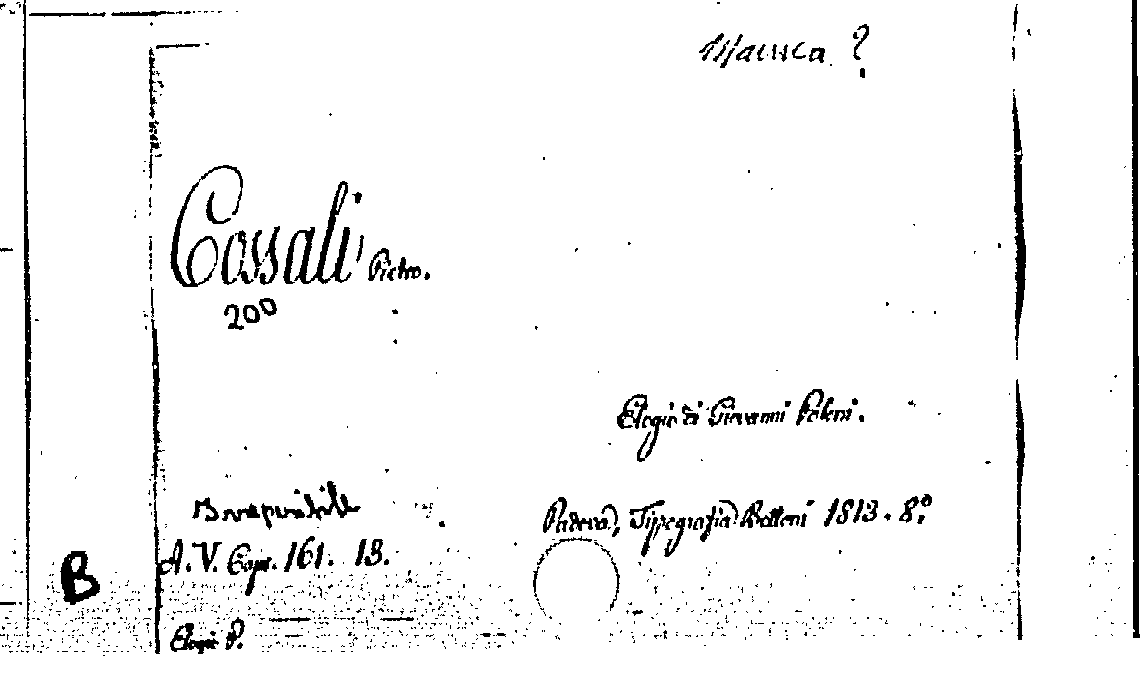 Manca ?
Cossali Pietro.
200
Elogio di Giovanni Poleni.
Irreperibile
Padova, Tipografia Bettoni 1813. 8.º
A. V. Capr. 161. 13.
B
Elogio P.